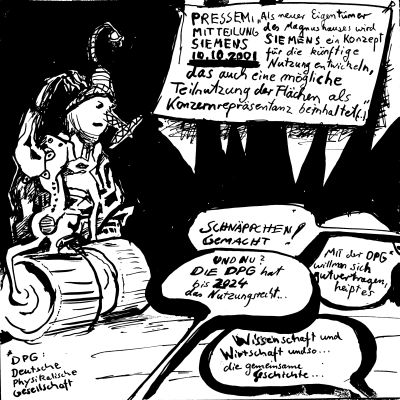 PRESSEMIT
MITTEILUNG
SIEMENS
10.10.2001
„Als neuer Eigentümer
des Magnushauses wird
SIEMENS ein Konzept
für die künftige
Nutzung entwickeln,
das auch eine mögliche
Teilnutzung der Flächen als
Konzernrepräsentanz beinhaltet(.)"
SCHNÄPPCHEN
GEMACHT!
UND NU?
DIE DPG hat
bis 2024
das Nutzungsrecht...
Mit der DPG*
will man sich
gut vertragen,
heißt es
Wissenschaft und
Wirtschaft undso...
die gemeinsame
Geschichte...
*
DPG:
Deutsche
Physikalische
Gesellschaft